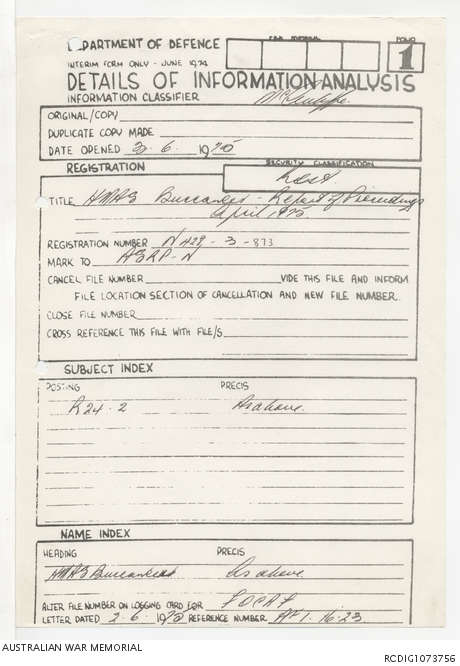 DEPARTMENT OF DEFENCE
FILE MATERIAL
FOLIO
1
INTERIM FORM ONLY - JUNE 1974
DETAILS OF INFORMATION ANALYSIS
INFORMATION CLASSIFIER
ORIGINAL/COPY
DUPLICATE COPY MADE
DATE OPENED 3.6 1975
REGISTRATION
SECURITY CLASSIFICATION
Rest
TITLE HMAS Buccaneer - Report of Proceedings
April, 1975
REGISTRATION NUMBER N429-3-873
MARK TO ASRP-N
CANCEL FILE NUMBER VIDE THIS FILE AND INFORM
FILE LOCATION SECTION OF CANCELLATION AND NEW FILE NUMBER.
CLOSE FILE NUMBER
CROSS REFERENCE THIS FILE WITH FILE/S
SUBJECT INDEX
POSTING PRECIS
R24-2 As above
NAME INDEX
HEADING PRECIS
HMAS Buccaneer As above
ALTER FILE NUMBER ON LOGGING CARD FOR FOCAF
LETTER DATED 2-6 1975 REFERENCE NUMBER AF 1-16-23
AUSTRALIAN WAR MEMORIAL
RCDIG1073756